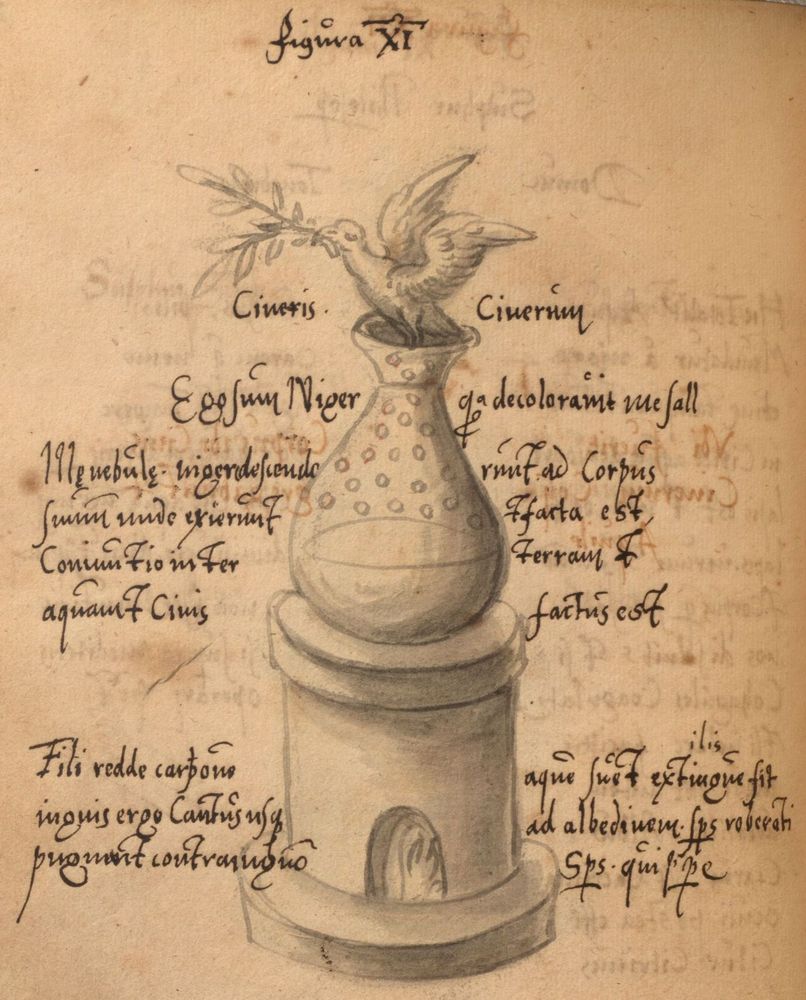 Figura XI
Cineris. Cinerum
Ego sum Niger qa decoloravit me sall
Mę nebulę. niger descendo runt ad Corpus
suum unde exierunt t facta est,
Coniunctio inter terram t
aquam t Cinis factus est
ilis
Fili redde carbone aque suet extingue fit
ignis ergo Cantus usq ad albedinem. sps roborati
pugnant contra ignē Sps. quippe